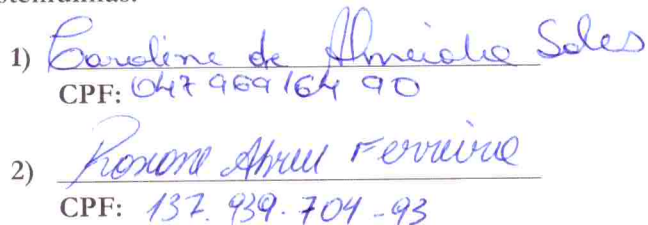 1) Caroline de Almeida Sales
CPF: 047 969 164 90
2) Roxone Abreu Ferreira
CPF: 137.939.704-93